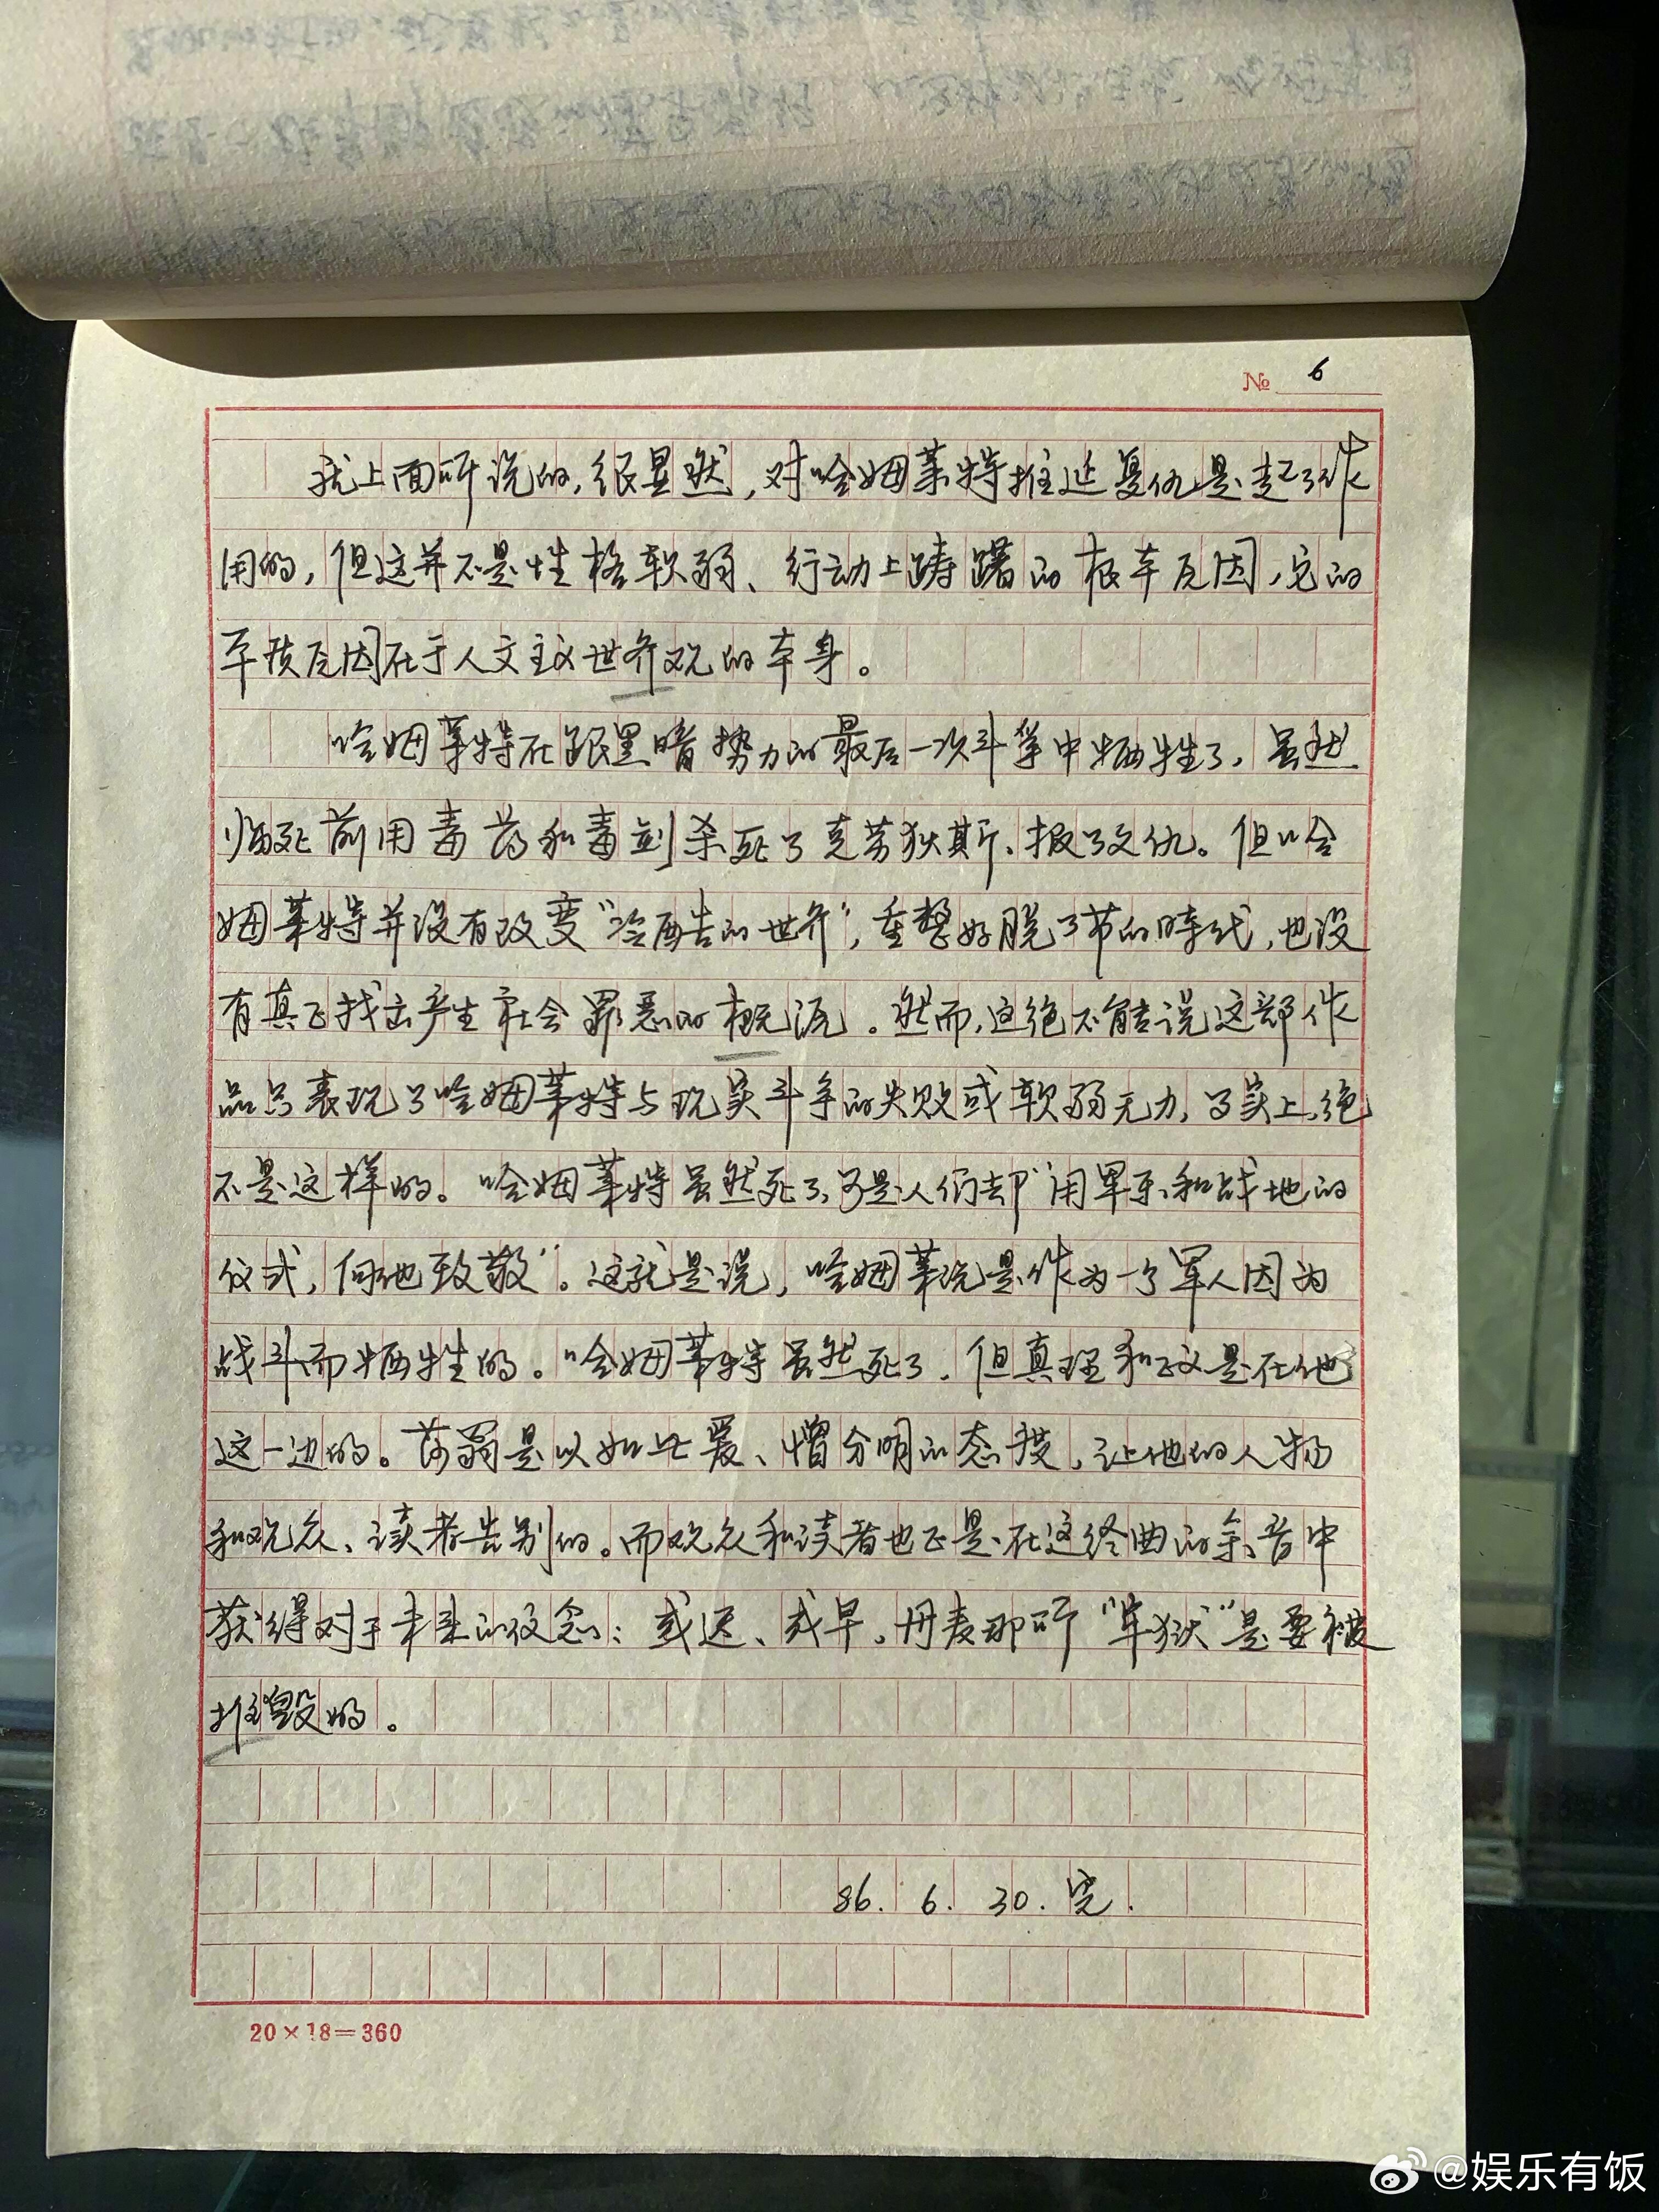 № 6
就上面所说的,很显然,对哈姆莱特推延复仇是起了作
用的,但这并不是性格软弱、行动上踌躇的根本原因,它的
本质原因在于人文主义世界观的本身。
哈姆莱特在跟黑暗势力的最后一次斗争中牺牲了,虽然
临死前用毒药和毒剑杀死了克劳狄斯、报了父仇。但哈
姆莱特并没有改变“冷酷的世界”,重整好脱了节的时代,也没
有真正找出产生社会罪恶的根源。然而,这绝不能说这部作
品只表现了哈姆莱特与现实斗争的失败或软弱无力,事实上,绝
不是这样的。哈姆莱特虽然死了,可是人们却“用军乐和战地的
仪式,向他致敬”。这就是说,哈姆莱说是作为一个军人因为
战斗而牺牲的。哈姆莱特虽然死了.但真理和正义是在他
这一边的。莎翁是以如此爱、憎分明的态度,让他的人物
和观众、读者告别的。而观众和读者也正是在这终曲的余音中
获得对于未来的信念:或迟、或早,丹麦那所“牢狱”是要被
摧毁的。
86.6.30.完.
20×18=360
@娱乐有饭